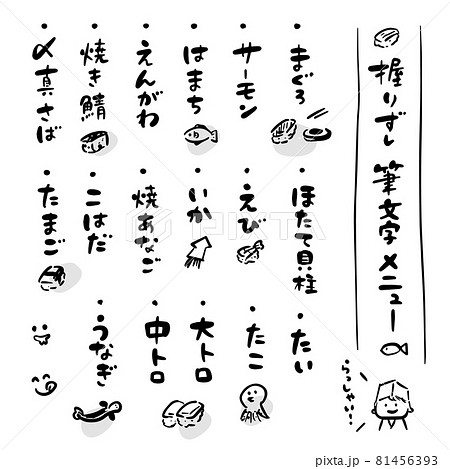 握りずし 筆文字メニュー
・まぐろ
・サーモン
・はまち
・えんがわ
・焼き鯖
・〆真さば
・ほたて貝柱
・えび
・いか
・焼あなご
・こはだ
・たまご
・たい
・たこ
・大トロ
・中トロ
・うなぎ
らっしゃい!
PIXTA
pixta.jp - 81456393